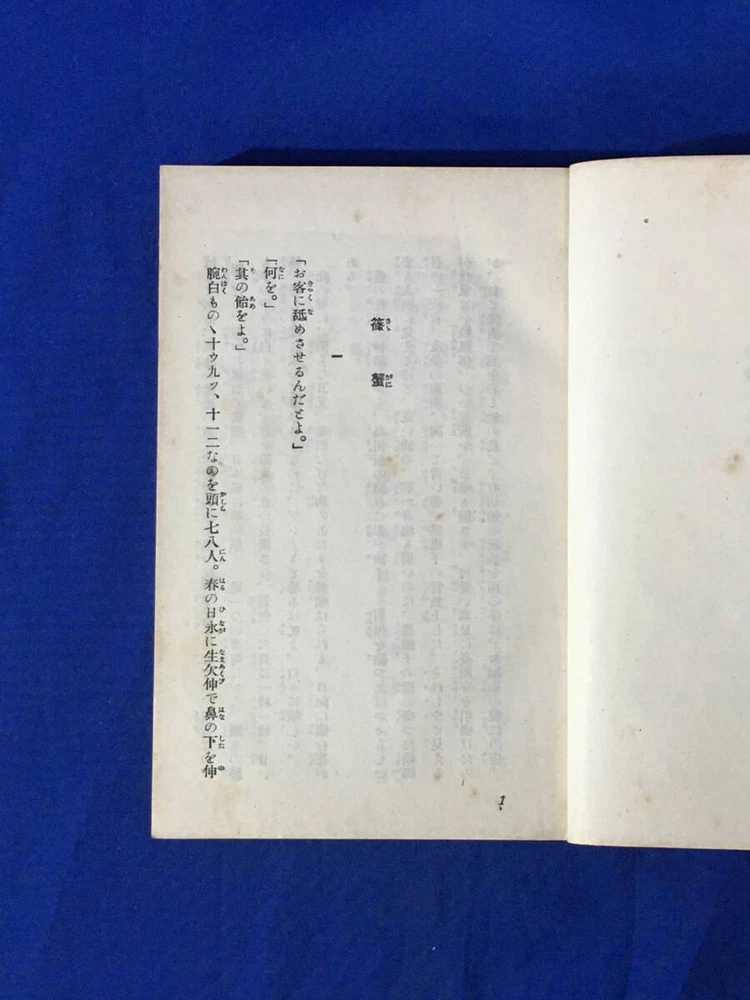 篠蟹
一
「お客に舐めさせるんだとよ。」
「何を。」
「其の飴をよ。」
腕白ものゝ十ゥ九ッ、十一二なのを頭に七八人。春の日永に生欠伸で鼻の下を伸
1